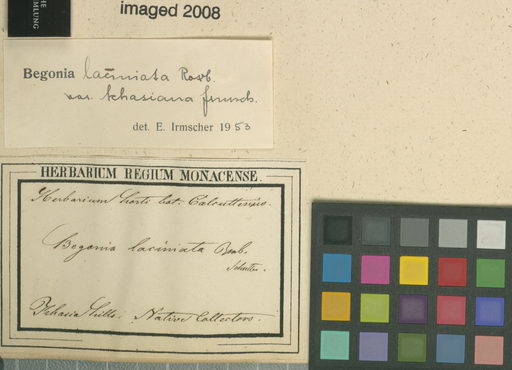 HE
MMLUNG
imaged 2008
Begonia laciniata Roxb.
var. khasiana Irmsch.
det. E. Irmscher 1953
HERBARIUM REGIUM MONACENSE.
Herbarium horti bot. Calcuttensis.
Begonia laciniata Roxb.
Khasia hills. Native Collectors.